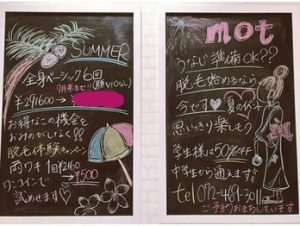 SUMMER
全身ベーシック6回
7月末まで!!(顔VIOなし)
¥291600→
お得なこの機会を
おみのがしなく!!
脱毛体験キャンペーン
両ワキ1回¥2160
→¥500
ワンコインで
試せます♡
mot
うなじ準備OK??
脱毛始めるなら
今です♡夏の
思いっきり楽しもう
学生様は50%OFF
中学生から通えます♡
tel 072-461-3011
ご予約おまちしています